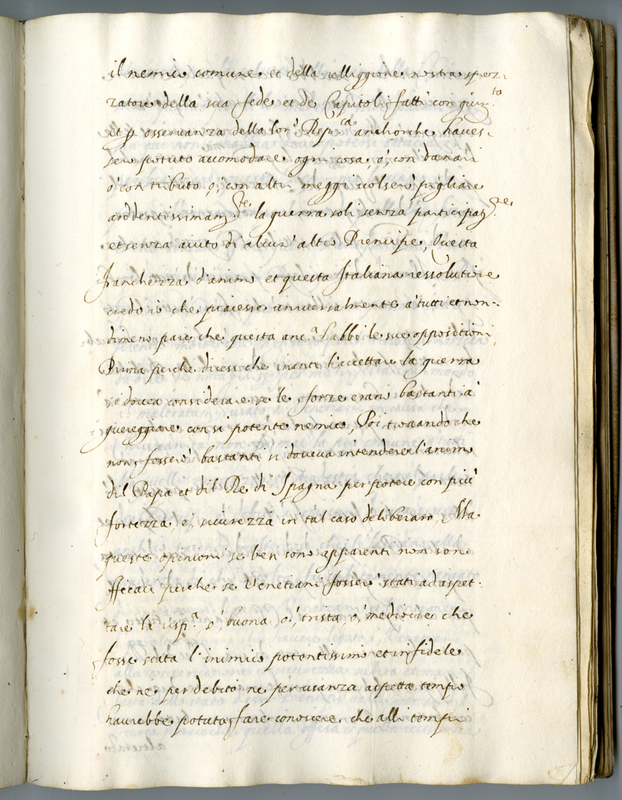 il nemico comune et della relliggione nostra sprez-
zatore della sua fede et de Capitoli fatti con giur.to
et p osseruanza della lor Rep.ca anchorche haues-
sero potuto accomodare ogni cosa ó con danari
ó con tributo, ó con altri meggi uolsero pigliare
arddentissimam.te la guerra soli senza participat.ne
et senza aiuto di alcun' altro Prencipe, Questa
franchezza d'animo et questa Italiana ressolutione
credo io che piacesse uniuersalmente a' tutti et non-
dimeno pare che questa anc.a habbi le sue oppositioni
Prima perche dicesi che inanti l'accettare la guerra
si doueua considerare se le forze erano bastanti á
guereggiare con si potente nemico, Poi trouando che
non fossero bastanti si doueua intendere l'animo
dil Papa et dil Re di Spagna per potere con piu'
fortezza ó sicurezza in tal caso deliberare, Ma
queste openioni se ben sono apparenti non sono
efficaci perche se Venetiani fossero stati ad aspet-
tare la risp.a ó buona, ó trista ó mediocre che
fosse stata l'inimico potentissimo et infidele
che ne per debito ne per usanza aspetta tempo
haurebbe potuto fare conoscere che alli tempi